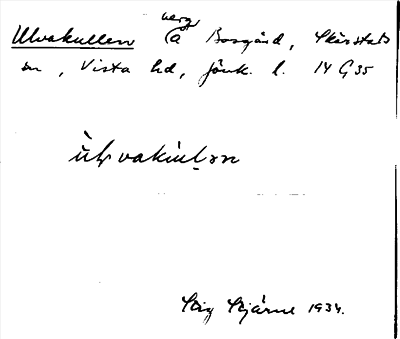 Ulvakullen berg å Bosgård, Skärstads
sn, Vista hd, Jönk. l. 14 G 35
Stig Stjärne 1934.